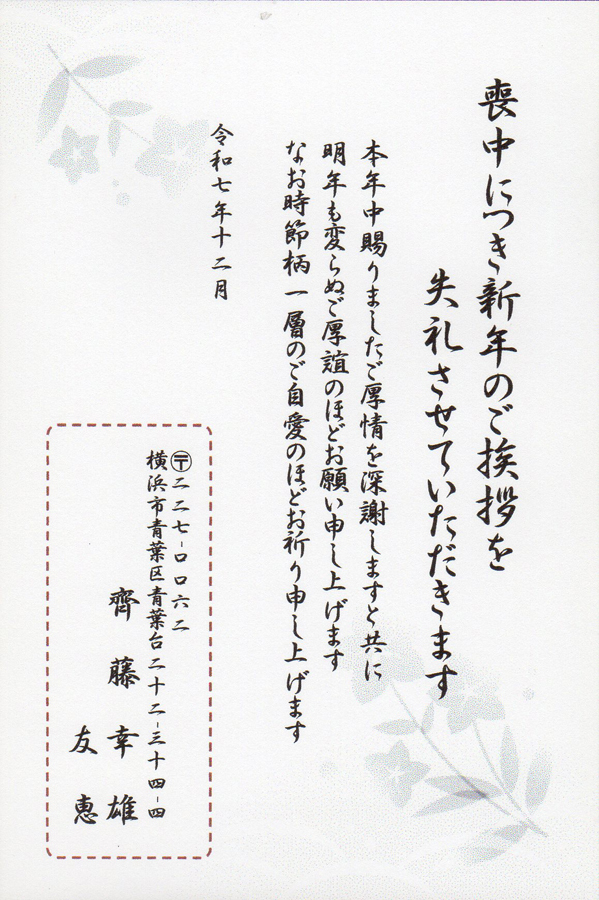 喪中につき新年のご挨拶を
失礼させていただきます
本年中賜りましたご厚情を深謝しますと共に
明年も変らぬご厚誼のほどお願い申し上げます
なお時節柄一層のご自愛のほどお祈り申し上げます
令和七年十二月
〒二二七-〇〇六二
横浜市青葉区青葉台二十二-三十四-四
齊藤幸雄
友恵